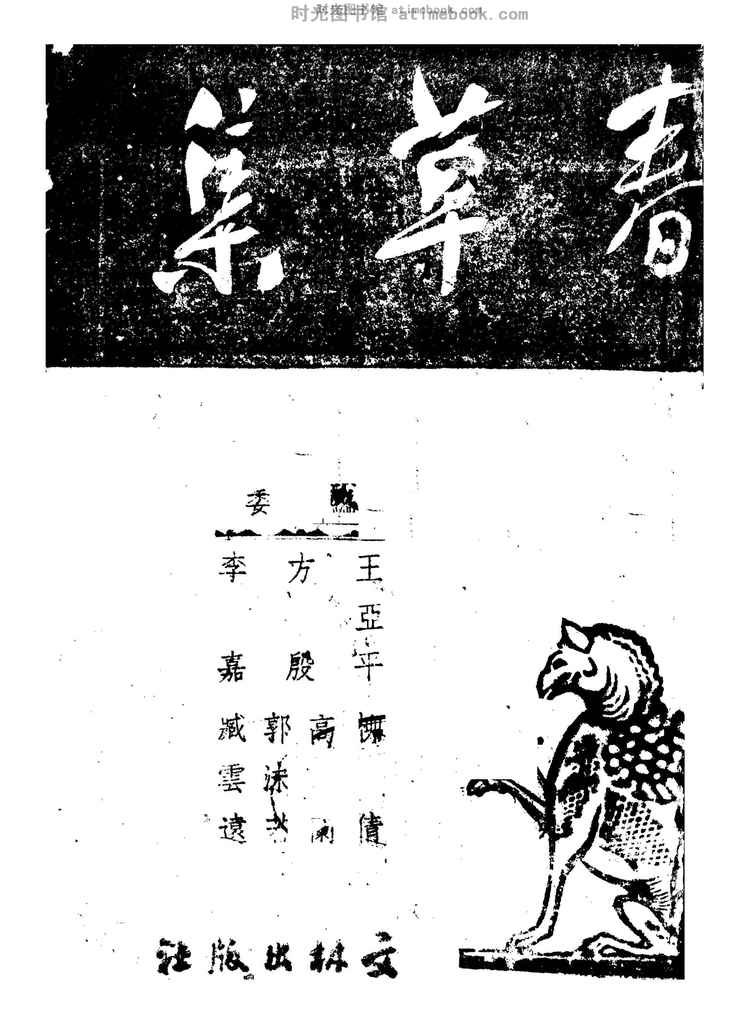 时光图书馆 atimebook.com
时光图书馆 atimebook.com
春草集
委
王亞平
方殷
李嘉
倩
高
郭沫
臧雲遠
文林出版社